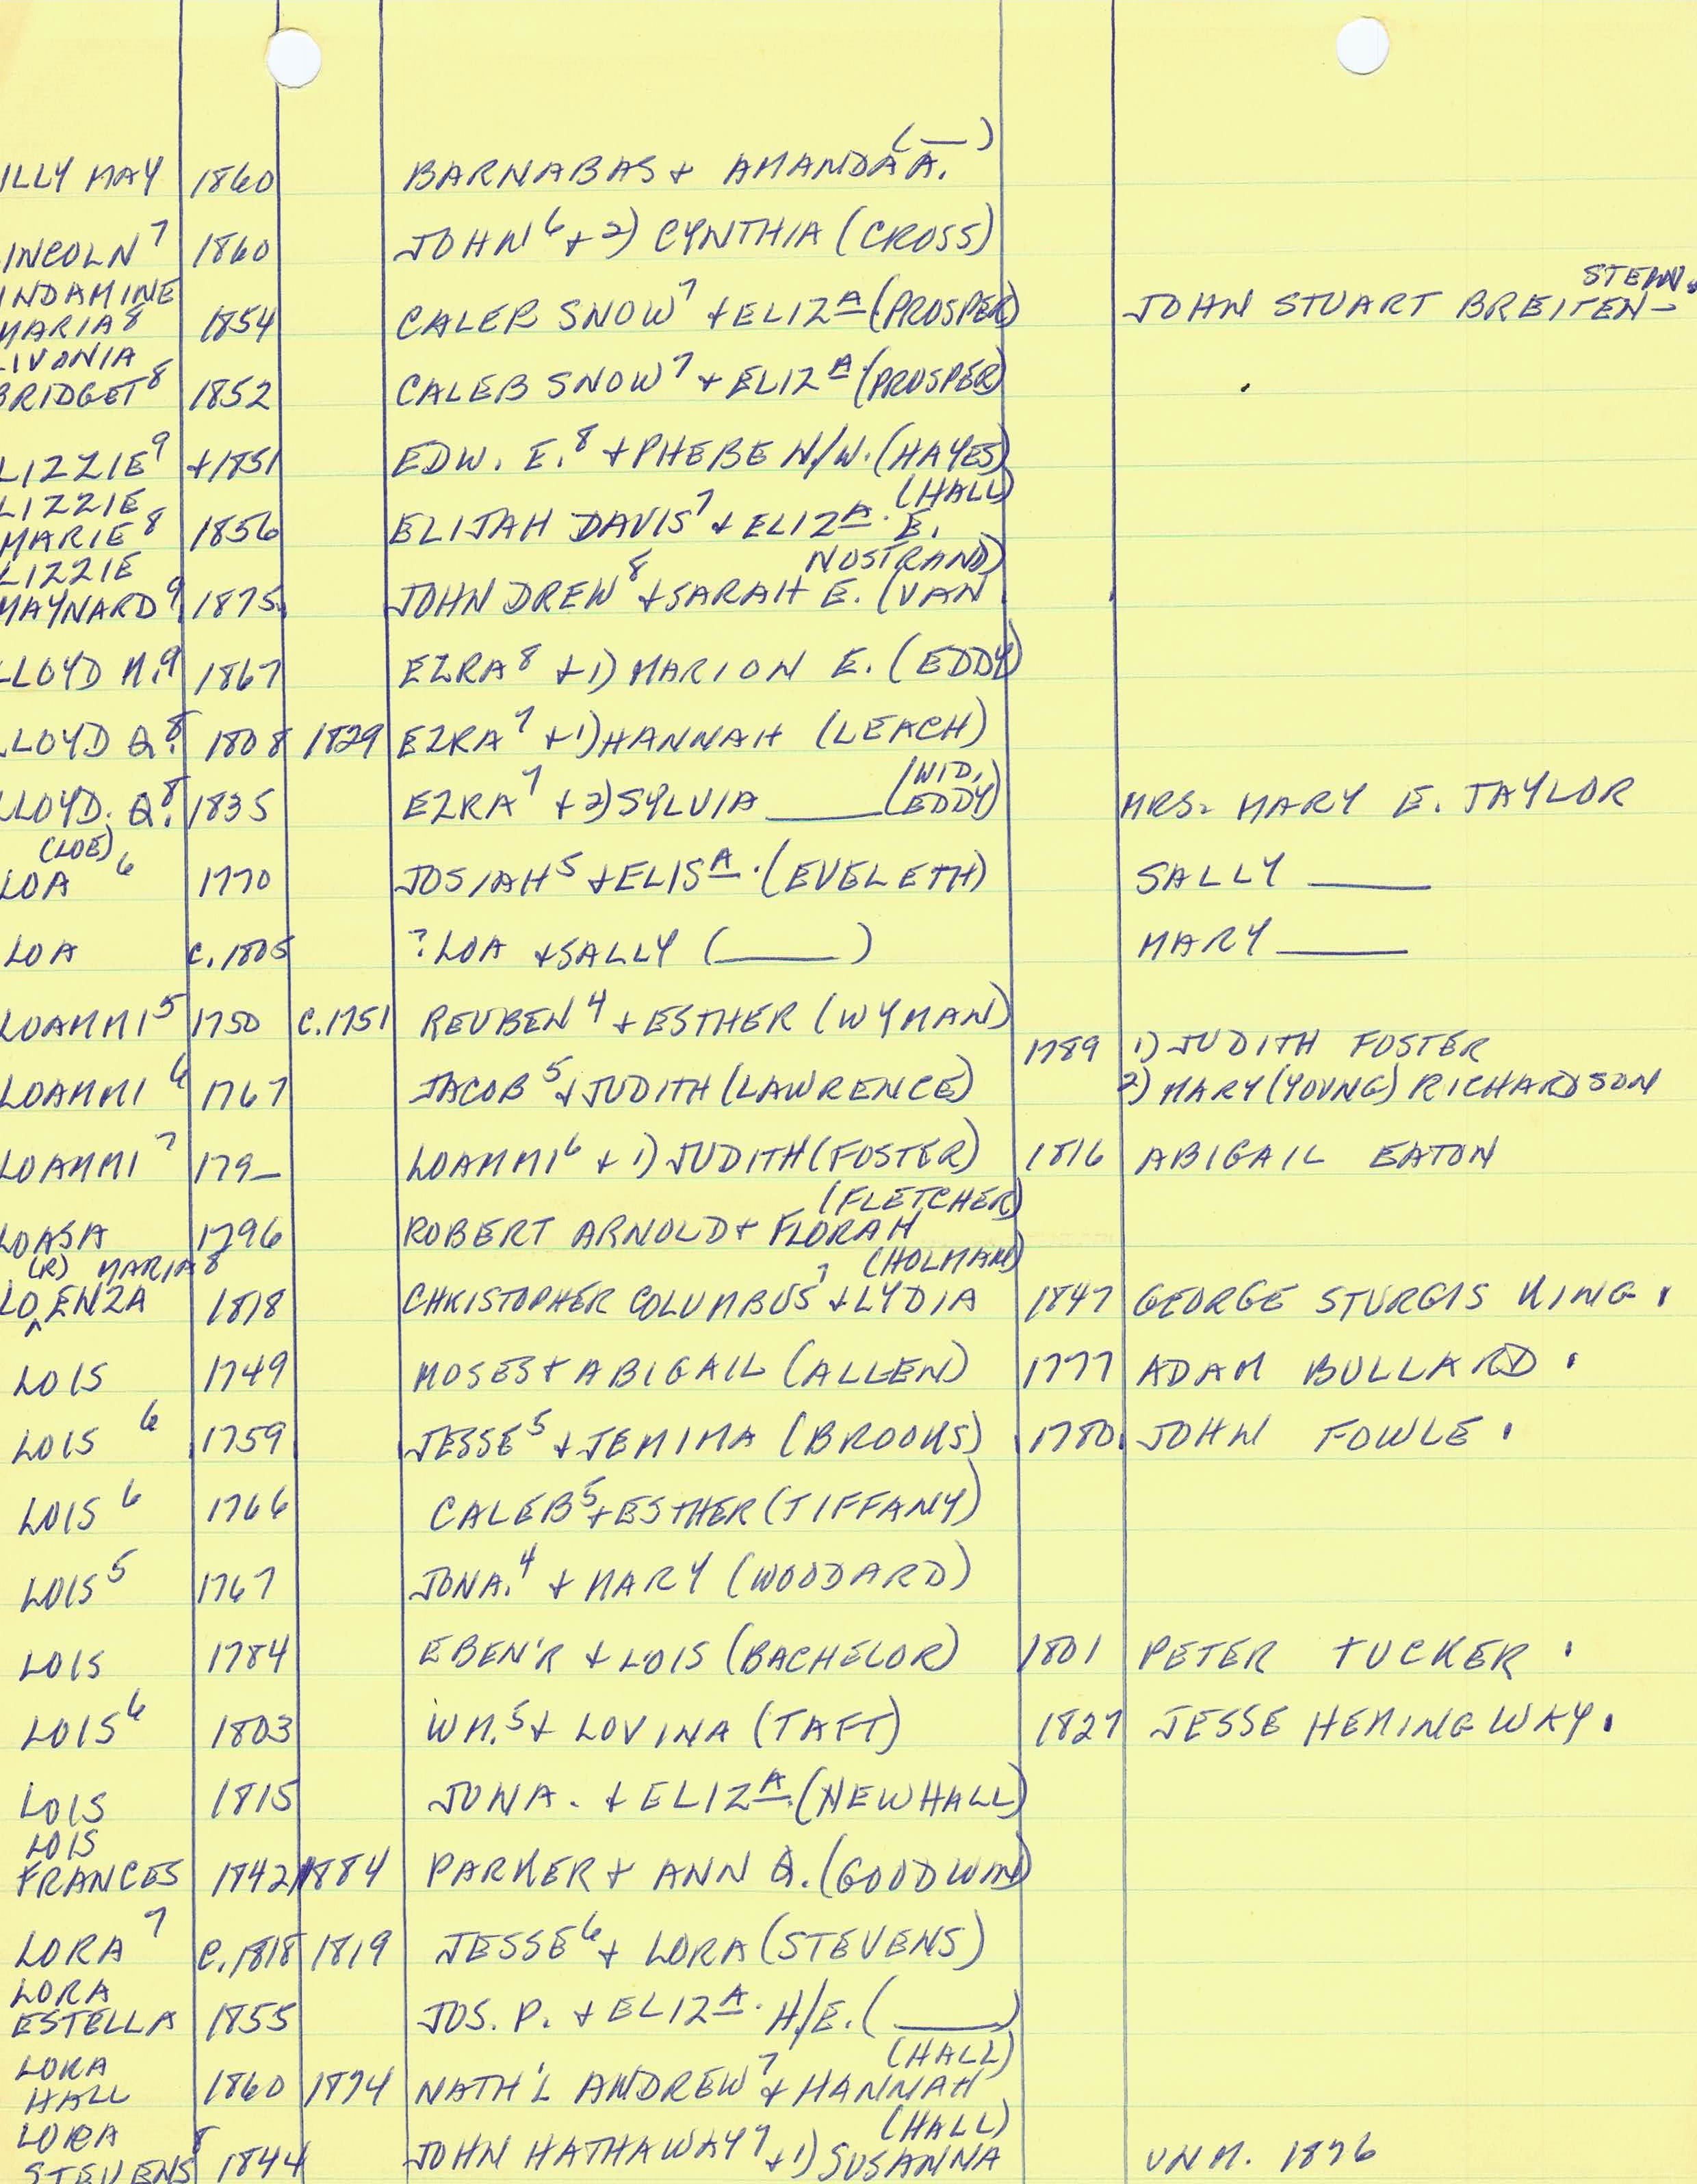 ILLY MAY 1860 BARNABAS + AMANDA A. (__)
INCOLN 7 1860 JOHN 6 + 2) CYNTHIA (CROSS)
INDAMINE
MARIA 8 1854 CALEB SNOW 7 + ELIZA (PROSPER) JOHN STUART BREITEN- STEIN.
IVONIA
BRIDGET 8 1852 CALEB SNOW 7 + ELIZA (PROSPER)
LIZZIE 9 +1851 EDW. E. 8 + PHEBE N/W. (HAYES)
LIZZIE (HALL)
MARIE 8 1856 ELIJAH DAVIS 7 + ELIZA. E.
LIZZIE NOSTRAND)
MAYNARD 9 1875 JOHN DREW 8 + SARAH E. (VAN
LLOYD M. 9 1867 EZRA 8 + 1) MARION E. (EDDY)
LLOYD Q. 8 1808 1829 EZRA 7 + 1) HANNAH (LEACH)
(WID.
LLOYD. Q. 8 1835 EZRA 7 + 2) SYLVIA ____ (EDDY) MRS. MARY E. TAYLOR
(LOE)
LOA 6 1770 JOSIAH 5 + ELISA. (EVELETH) SALLY ____
LOA C. 1805 ? LOA + SALLY (____) MARY ____
LOAMMI 5 1750 C. 1751 REUBEN 4 + ESTHER (WYMAN)
1789 1) JUDITH FOSTER
LOAMMI 6 1767 JACOB 5 + JUDITH (LAWRENCE) 2) MARY (YOUNG) RICHARDSON
LOAMMI 7 179_ LOAMMI 6 + 1) JUDITH (FOSTER) 1816 ABIGAIL EATON
(FLETCHER)
LOASA 1796 ROBERT ARNOLD + FLORAH
(R) MARIA 8 (HOLMAN)
LO^ENZA 1818 CHRISTOPHER COLUMBUS 7 + LYDIA 1847 GEORGE STURGIS KING.
LOIS 1749 MOSES + ABIGAIL (ALLEN) 1777 ADAM BULLARD.
LOIS 6 1759 JESSE 5 + JEMIMA (BROOKS) 1780 JOHN FOWLE.
LOIS 6 1766 CALEB 5 + ESTHER (TIFFANY)
LOIS 5 1767 JONA. 4 + MARY (WOODARD)
LOIS 1784 EBEN'R + LOIS (BACHELOR) 1801 PETER TUCKER.
LOIS 6 1803 WM. 5 + LOVINA (TAFT) 1827 JESSE HEMINGWAY.
LOIS 1815 JONA. + ELIZA. (NEWHALL)
LOIS
FRANCES 1842 1884 PARKER + ANN Q. (GOODWIN)
LORA 7 C. 1818 1819 JESSE 6 + LORA (STEVENS)
LORA
ESTELLA 1855 JOS. P. + ELIZA. H/E. (____)
LORA (HALL)
HALL 1860 1874 NATH'L ANDREW 7 + HANNAH
LORA (HALL)
STEVENS 8 1844 JOHN HATHAWAY 7 + 1) SUSANNA UNM. 1876